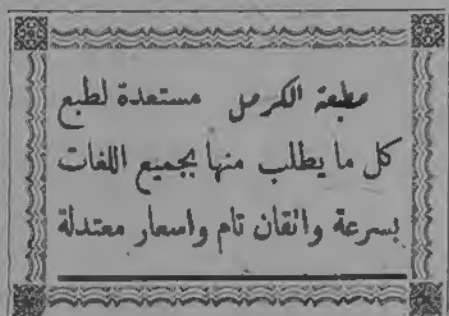 مطبعة الكرمل مستعدة لطبع
كل ما يطلب منها بجميع اللغات
بسرعة واتقان تام واسعار معتدلة